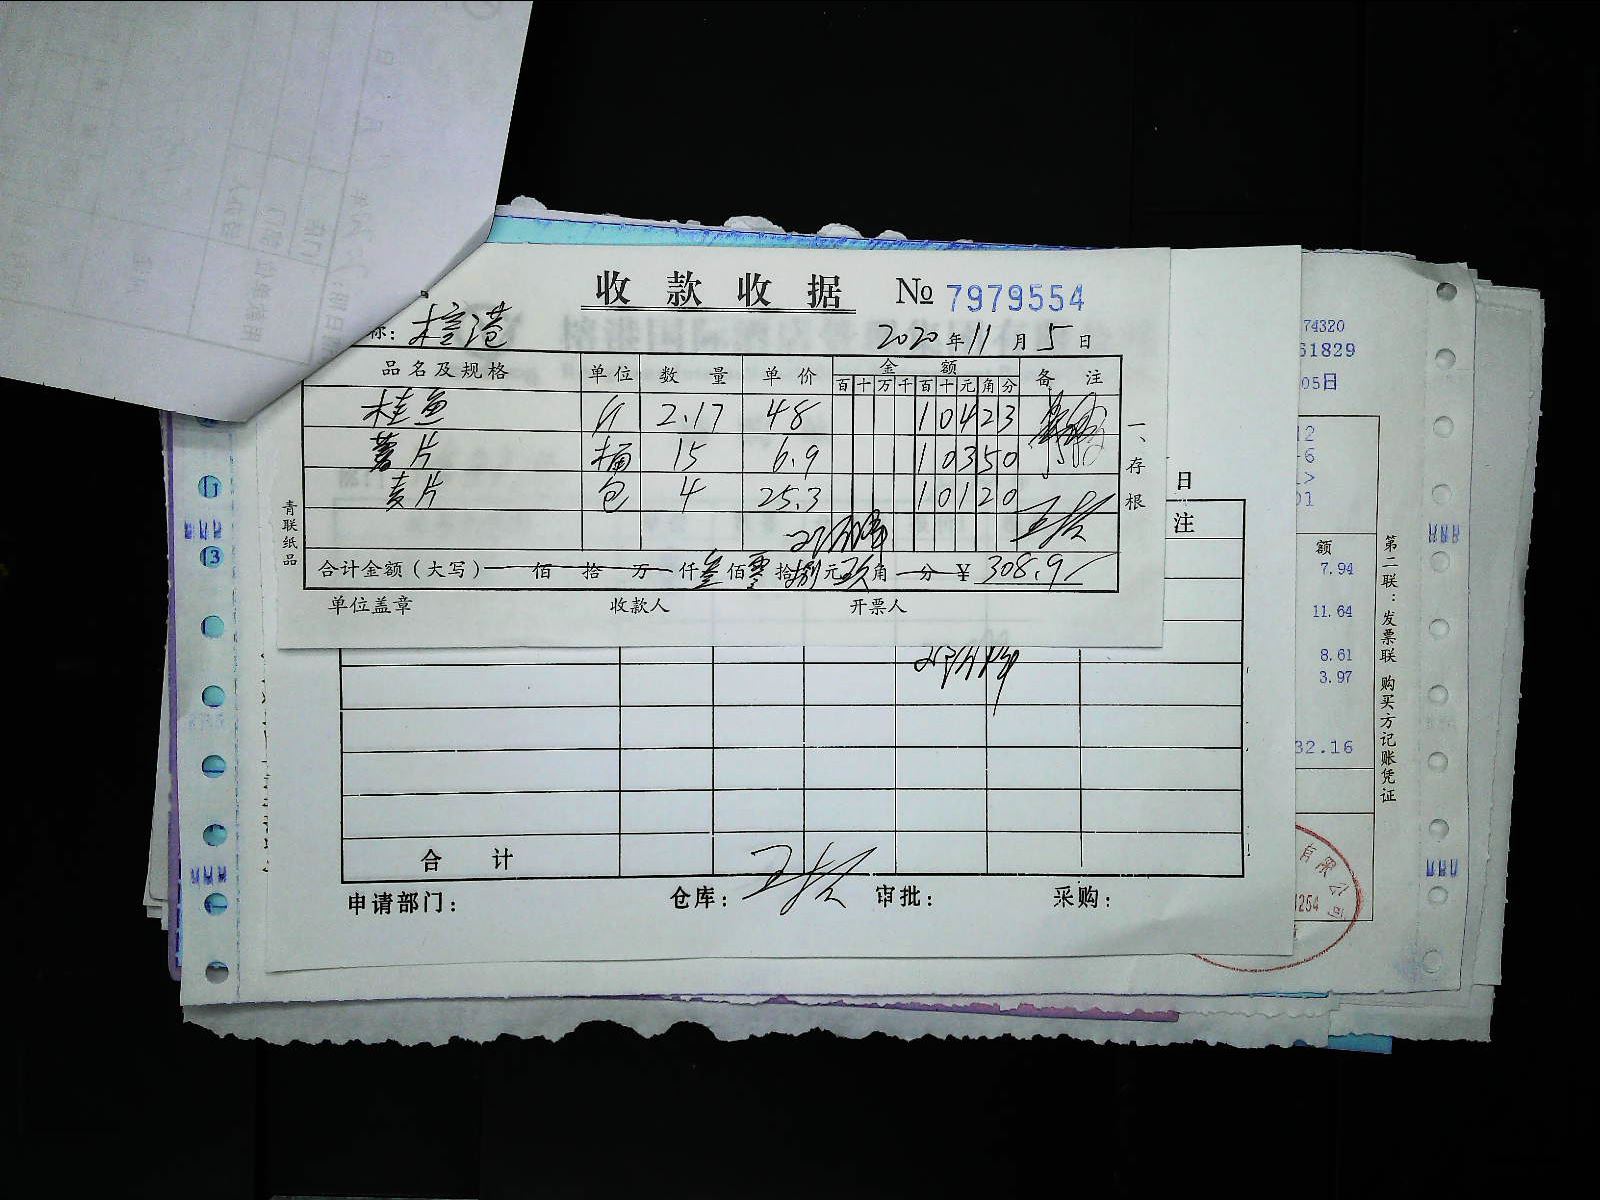 收款收据 № 7979554
称: 檀港 2020年11月5日
品名及规格 单位 数量 单价 金额 备注
百十万千百十元角分
桂鱼 斤 2.17 48 10423
薯片 桶 15 6.9 10350
麦片 包 4 25.3 10120
合计金额(大写) 佰 拾 万 仟叁佰零拾捌元玖角 分 ¥ 308.9
单位盖章 收款人 开票人
一、存根
青联纸品
日
注
合计
申请部门: 仓库: 审批: 采购:
74320
61829
05日
额
7.94
11.64
8.61
3.97
32.16
第二联:发票联 购买方记账凭证
有限公司